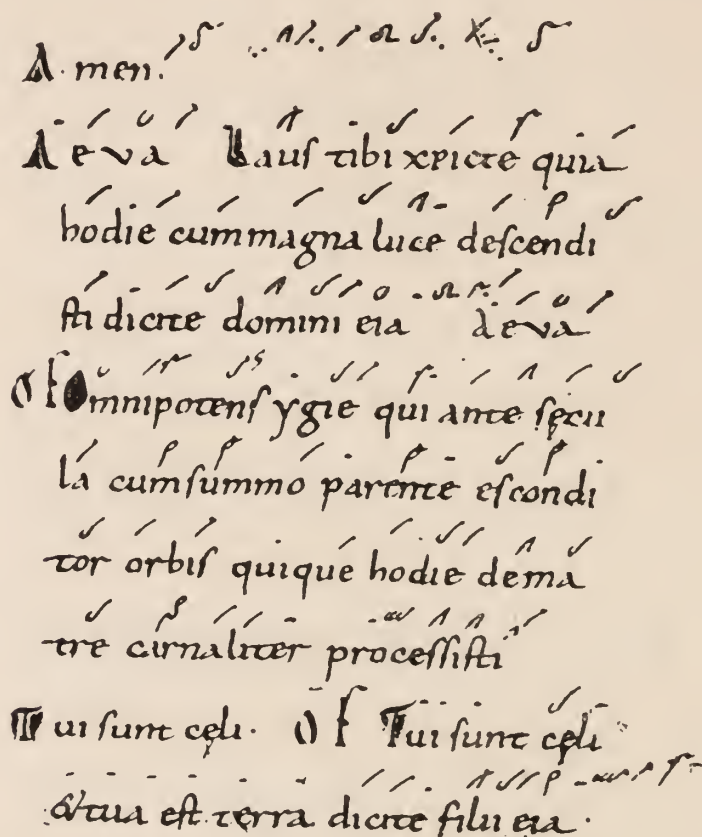 A·men·
Aeva Laus tibi xpicte quia
hodie cum magna luce descendi
sti dicite domini eia aeva
Of Omnipotens ygie qui ante sęcu
la cum summo parente es condi
tor orbis quique hodie de ma
tre carnaliter processisti
Tui sunt cęli· Of Tui sunt cęli
& tua est terra dicite filii eia·